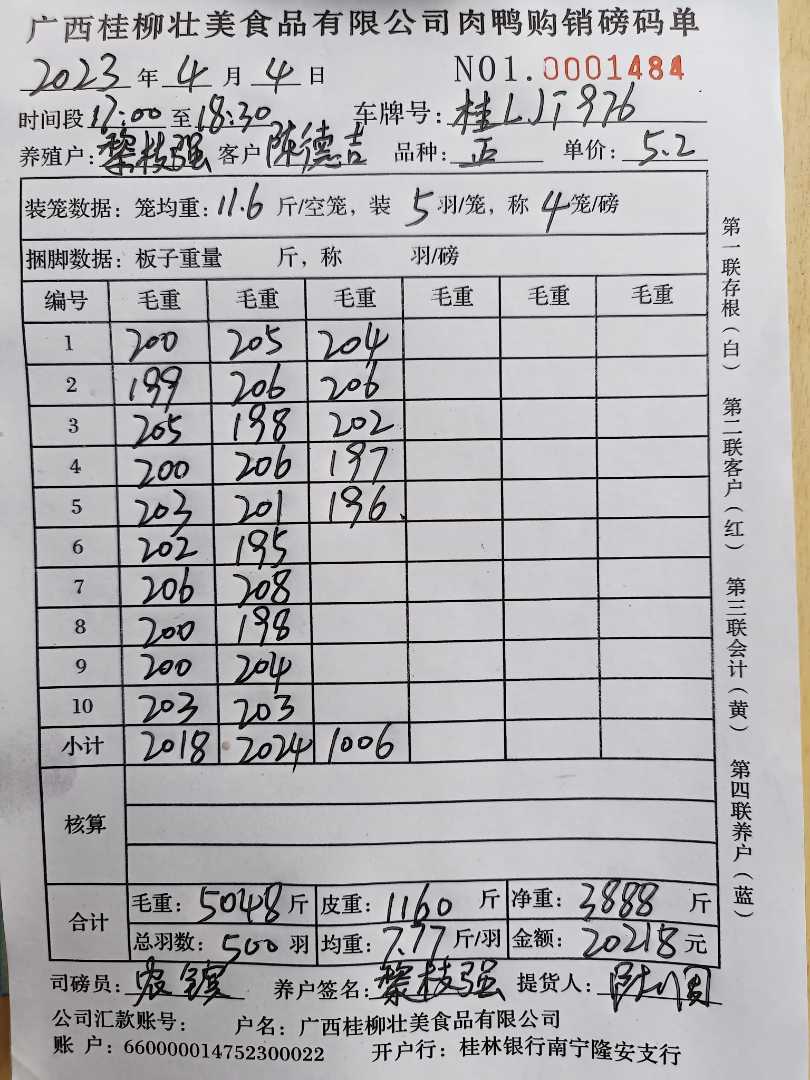 广西桂柳壮美食品有限公司肉鸭购销磅码单
2023 年 4 月 4 日 NO1.0001484
时间段 17:00 至 18:30 车牌号: 桂LJT976
养殖户: 黎枝强 客户 陈德吉 品种: 正 单价: 5.2
装笼数据: 笼均重: 11.6 斤/空笼, 装 5 羽/笼, 称 4 笼/磅
捆脚数据: 板子重量 斤, 称 羽/磅
编号 毛重 毛重 毛重 毛重 毛重 毛重
1 200 205 204
2 199 206 206
3 205 198 202
4 200 206 197
5 203 201 196
6 202 195
7 206 208
8 200 198
9 200 204
10 203 203
小计 2018 2024 1006
核算
合计 毛重: 5048 斤 皮重: 1160 斤 净重: 3888 斤
总羽数: 500 羽 均重: 7.77 斤/羽 金额: 20218 元
司磅员: 养户签名: 黎枝强 提货人:
公司汇款账号: 户名: 广西桂柳壮美食品有限公司
账 户: 660000014752300022 开户行: 桂林银行南宁隆安支行
第一联存根(白) 第二联客户(红) 第三联会计(黄) 第四联养户(蓝)